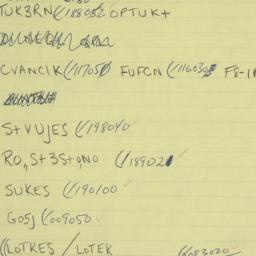 TUK3RN(/188032 OPTUK+
CVANCIK(/117050 FUFCN (/116030 F8-1
S+VUJES (/198040
RO,S+3S+gNO (/189021
SUKES (/190100
GOSJ (/009050
(/LOTKES / LOTEK (/083020